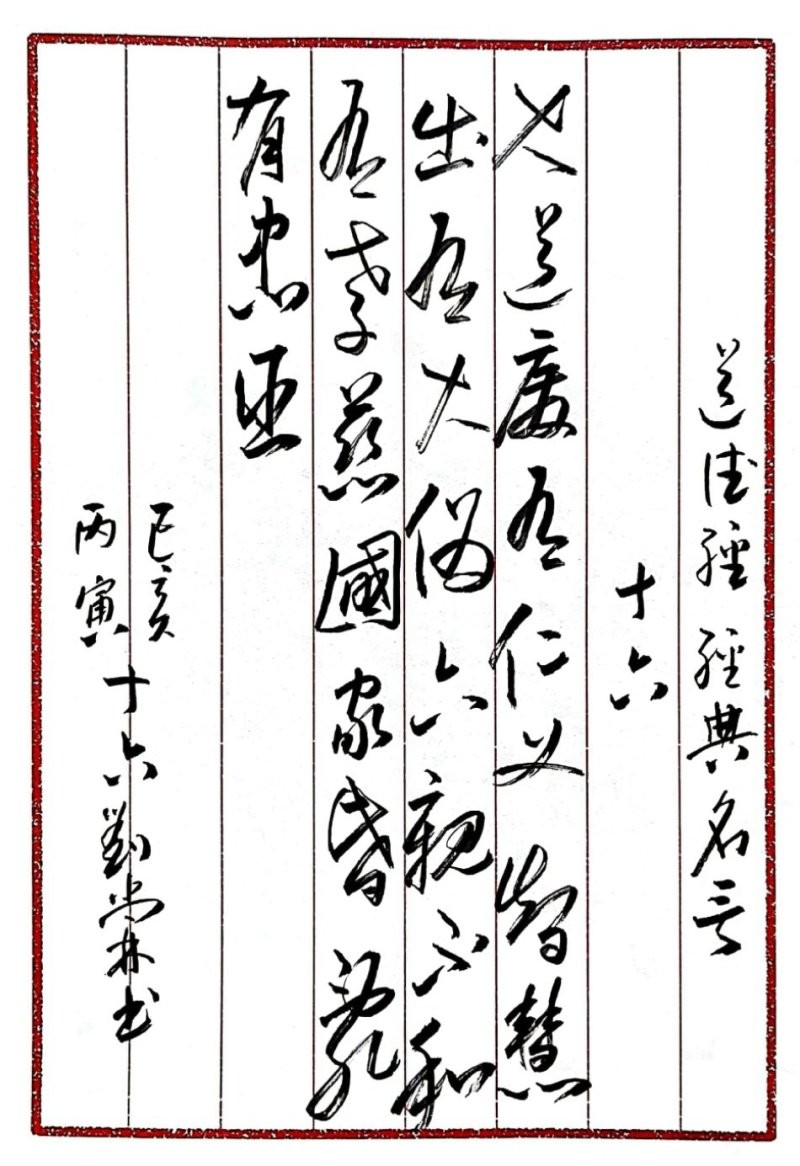 道德經經典名言
十六
大道废有仁义智慧
出有大伪六親不和
有孝慈國家昏亂
有忠臣
己亥
丙寅十六劉崇林书